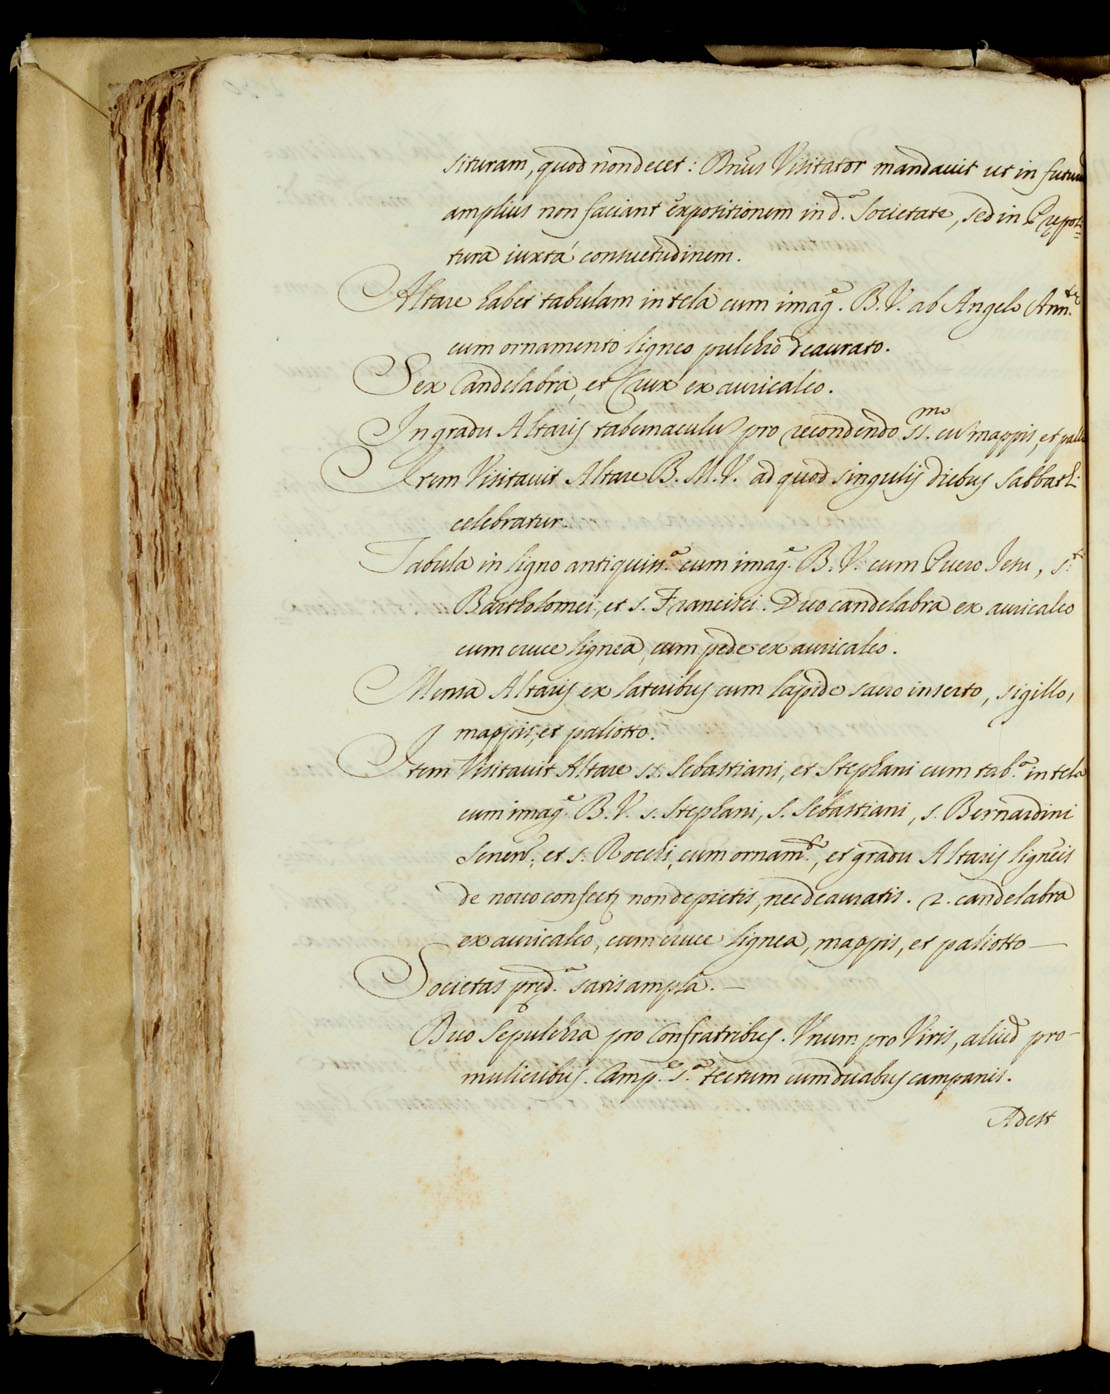 situram, quod non decet: Dnūs Visitator mandavit ut in futurū
amplius non faciant expositionem in d.ª Societate, sed in Prepos=
tura iuxtà consuetudinem.
Altare habet tabulam in tela cum imag.e B. V. ab Angelo Ann.ta
cum ornamento ligneo pulchro deaurato.
Sex Candelabra, et Crux ex auricalco.
In gradu Altaris tabernaculū pro recondendo SS.mo cū mappis, et
Item Visitavit Altare B. M. V. ad quod singulis diebus Sabbati
celebratur.
Tabula in ligno antiquiss.ª cum imag.e B. V. cum Puero Jesu, S.ti
Bartholomei, et S. Francisci. Duo candelabra ex auricalco
cum cruce lignea, cum pede ex auricalco.
Mensa Altaris ex lateribus cum lapide sacro inserto, sigillo,
mappis, et paliotto.
Item Visitavit Altare SS. Sebastiani, et Stephani cum tab.ª in tela
cum imag.e B. V. S. Stephani, S. Sebastiani, S. Bernardini
Senen.s, et S. Rocchi, cum ornam.to, et gradu Altaris ligneis
de novo confectis non depictis, nec deauratis. 2. candelabra
ex auricalco, cum cruce lignea, mappis, et paliotto —
Societas pred.ª satis ampla. —
Duo Sepulchra pro Confratribus. Unum pro Viris, aliud pro-
mulieribus. Camp.e s.ª tectum cum duabus campanis.
Adest